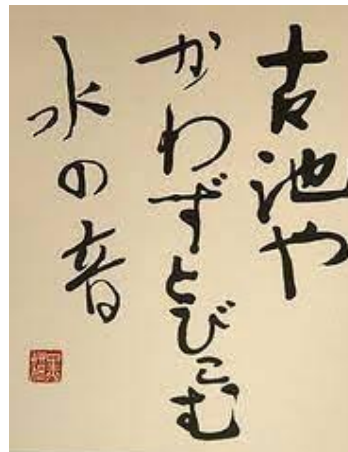 古池や
かわずとびこむ
水の音